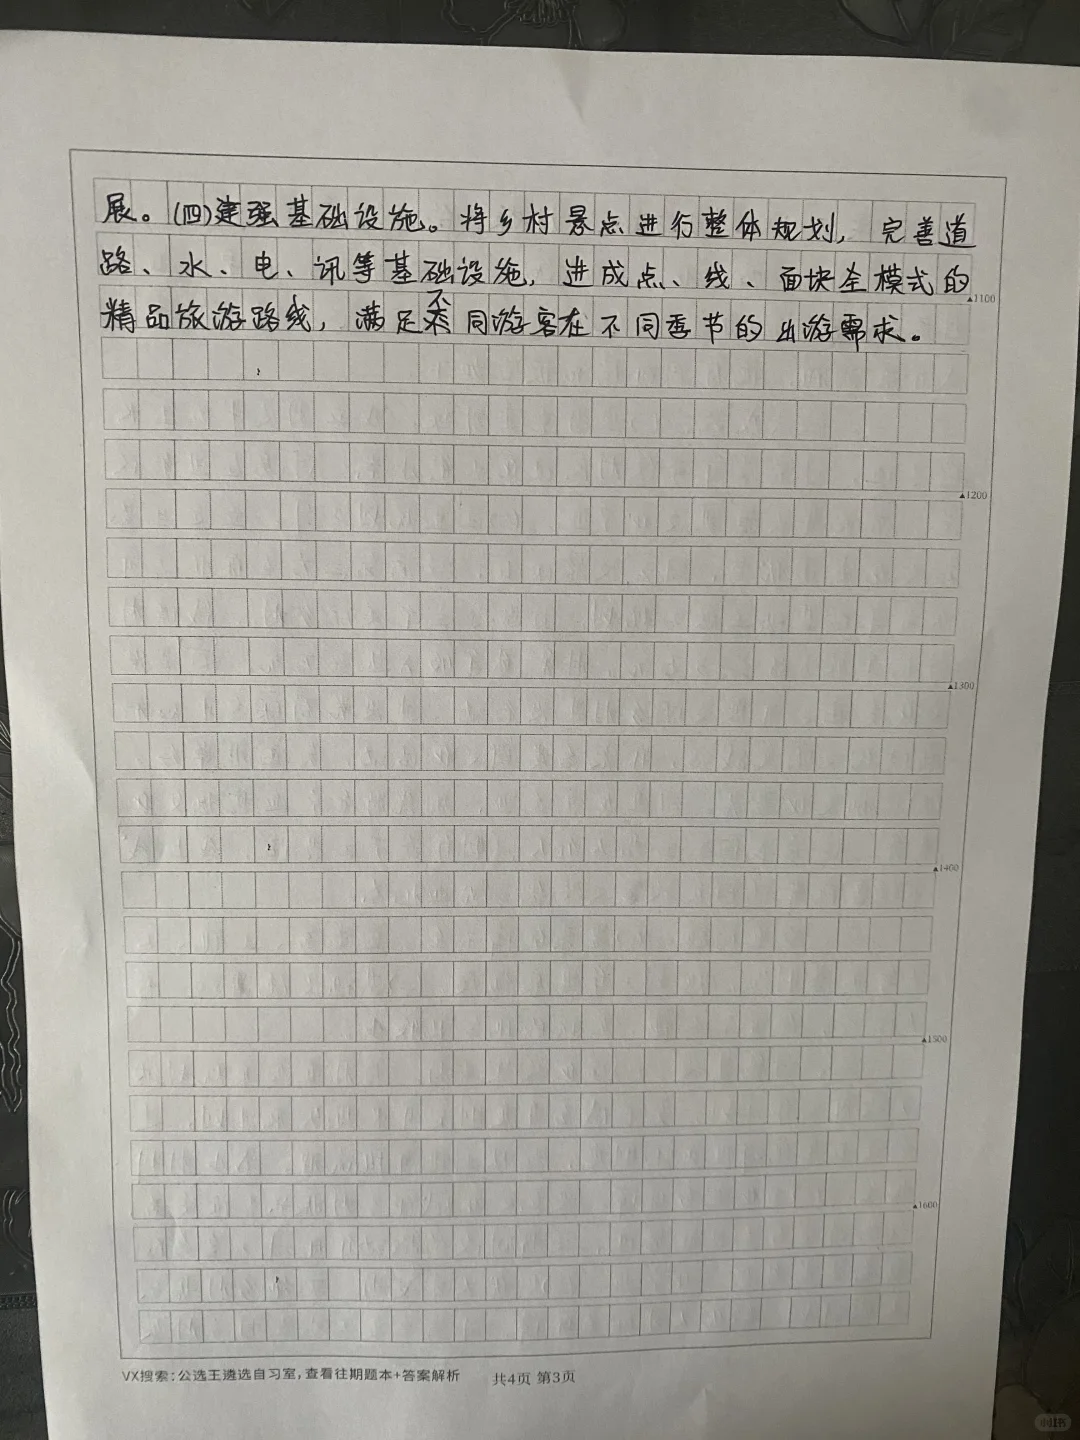 展。(四)建强基础设施。将乡村景点进行整体规划，完善道
路、水、电、讯等基础设施，进成点、线、面块全模式的
精品旅游路线，满足不同游客在不同季节的出游需求。
▲1100
▲1200
▲1300
▲1400
▲1500
▲1600
VX搜索：公选王遴选自习室，查看往期题本+答案解析 共4页 第3页